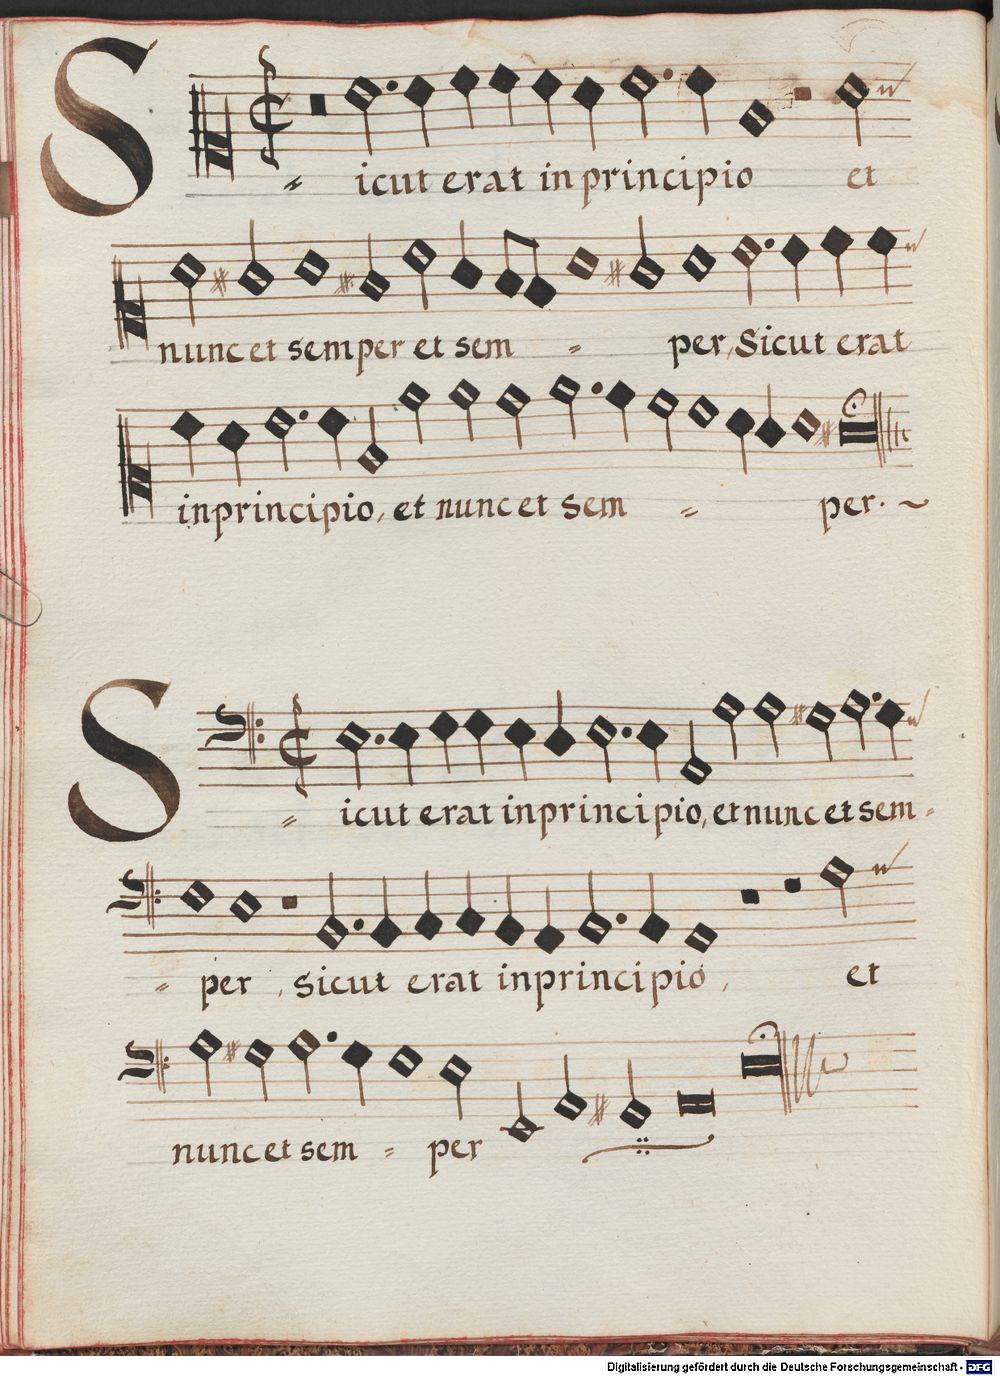 Sicut erat in principio et
nunc et semper et sem = per, Sicut erat
in principio, et nunc et sem = per.
Sicut erat in principio, et nunc et sem =
= per, Sicut erat in principio, et
nunc et sem = per
Digitalisierung gefördert durch die Deutsche Forschungsgemeinschaft - DFG